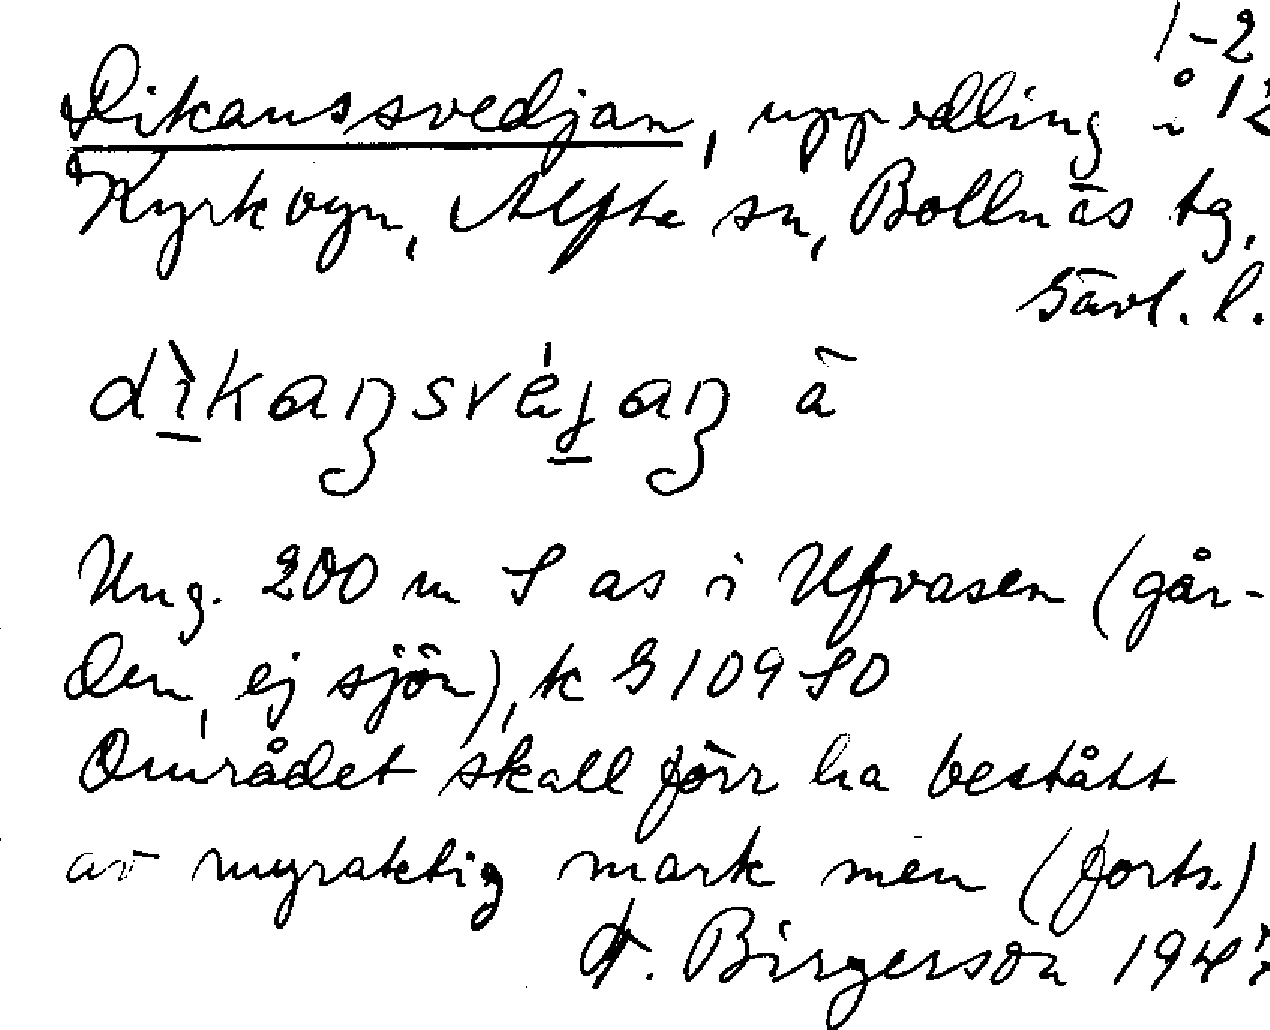 1-2
Dikanssvedjan, uppodling å 12
Kyrkbyn, Alfta sn, Bollnäs tg,
Gävl. l.
dìkansvéjan ā
Ung. 200 m S as i Ufvasen (går-
den, ej sjön), k G 109 SO
Området skall förr ha bestått
av myraktig mark men (forts.)
Birgerson